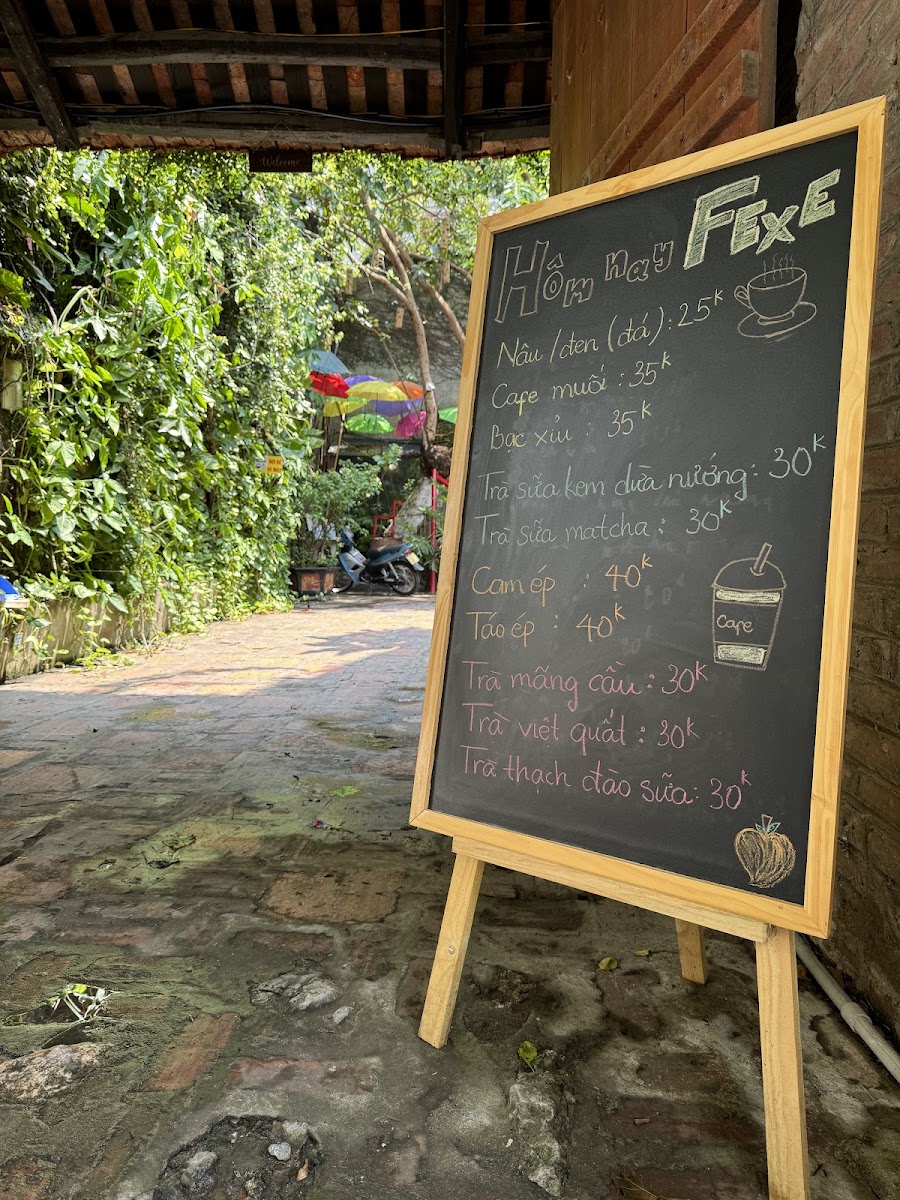 Welcome
Hôm nay FEXE
Nâu /đen (đá): 25k
Cafe muối : 35k
Bạc xỉu : 35k
Trà sữa kem dừa nướng: 30k
Trà sữa matcha : 30k
Cam ép : 40k
Táo ép : 40k
Cafe
Trà mãng cầu : 30k
Trà việt quất : 30k
Trà thạch đào sữa: 30k